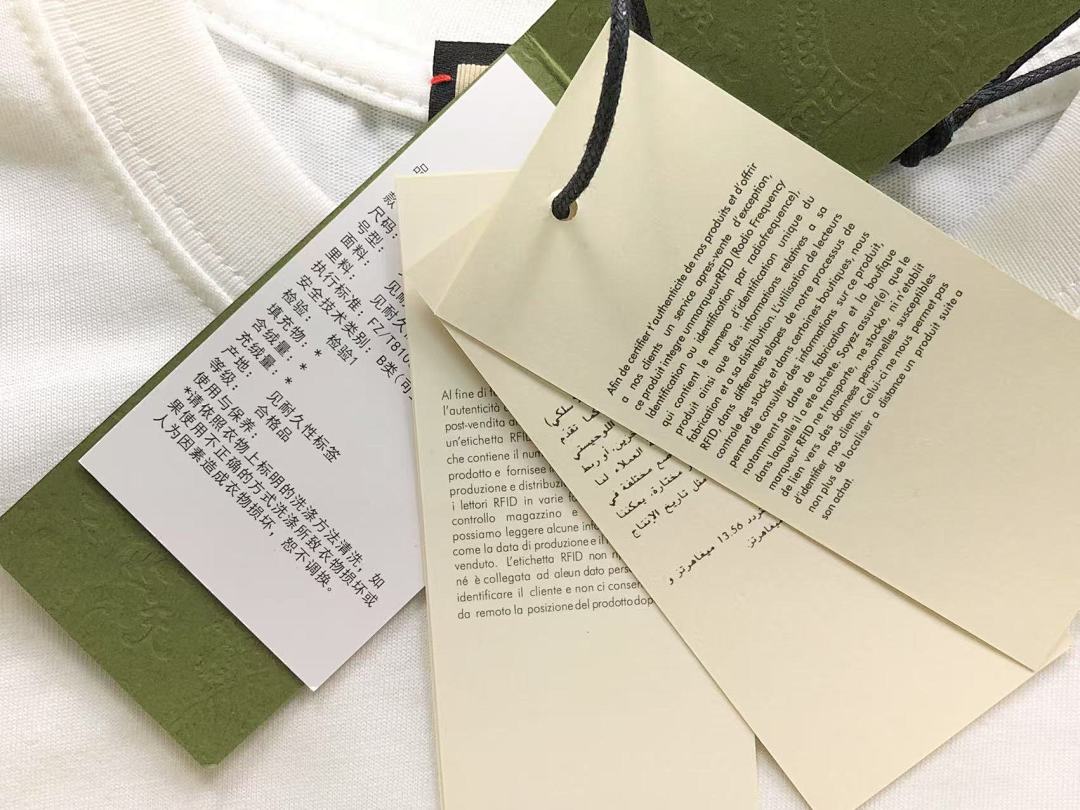 品
款
尺码:
号型:
面料:
里料: 见耐
执行标准: 见耐久
安全技术类别: FZ/T810
检验: B类(可
填充物: 检验1
含绒量: *
充绒量: *
产地: *
等级: 见耐久性标签
使用与保养: 合格品
*请依照衣物上标明的洗涤方法清洗,如
果使用不正确的方式洗涤所致衣物损坏或
人为因素造成衣物损坏,恕不调换。
Al fine di
l'autenticità
post-vendita
un'etichetta RFID
che contiene il
prodotto e fornisce
produzione e
i lettori RFID in varie
controllo magazzino e
possiamo leggere alcune
come la data di produzione e il
venduto. L'etichetta RFID non
né è collegata ad aleun dato
identificare il cliente e non ci
da remoto la posizione del prodotto dop
تقدم
العملاء
مختلفة في
مختارة، يمكننا
مثل تاريخ الإنتاج
13.56 ميغاهرتز و
ميغاهرتز.
Afin de certifier t'authenticite de nos produits et d'offrir
a nos clients un service apres-vente d'exception,
ce produit integre unmarqueurRFID (Rodio Frequency
Identification ou identification par radiofrequence),
qui contient le numero d'identification unique du
produit ainsi que des informations relatives a sa
fabrication et a sa distribution. L'utilisation de lecteurs
RFID, dans differentes elapes de notre processus de
controle des stocks et dans certaines boutiques, nous
permet de consulter des informations sur ce produit,
notamment sa date de fabrication et la boufique
dans laquelle il a ete achete. Soyez assure(e) que le
marqueur RFID ne transporte, ne stocke, ni n'etablit
de lien vers des donnees personnelles susceptibles
d'identifier nos clients. Celui-ci ne nous permet pas
non plus de localiser a distance un produit suite a
son achat.